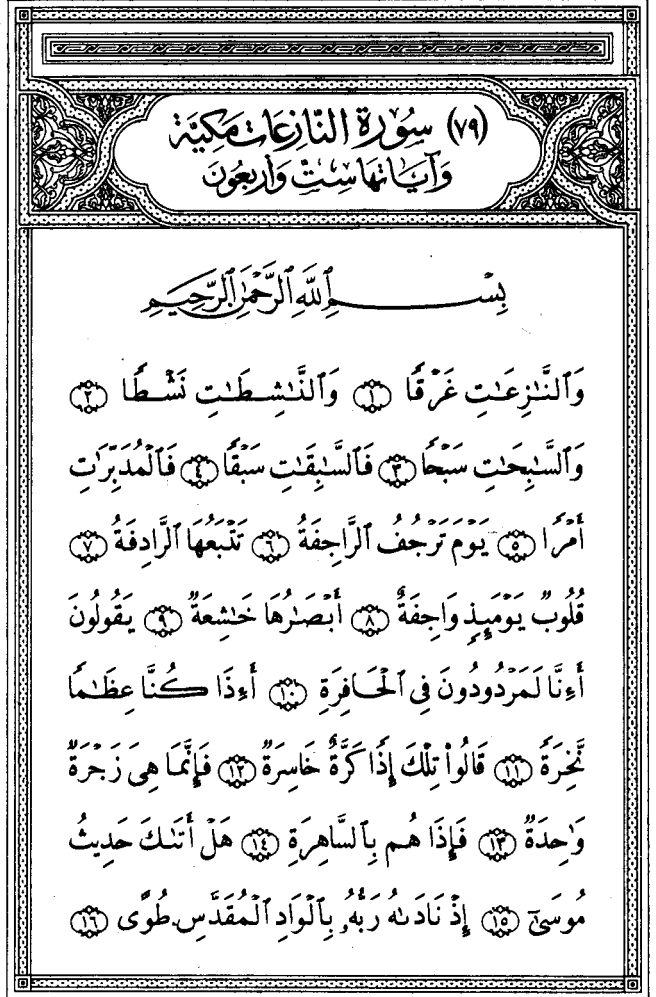 (٧٩) سُورَة النَّازِعَات مَكِيَّة
وَآيَاتُهَا سِتّ وَأَرْبَعُونَ
بِسْمِ ٱللَّهِ ٱلرَّحْمَٰنِ ٱلرَّحِيمِ
وَٱلنَّٰزِعَٰتِ غَرْقًا ١ وَٱلنَّٰشِطَٰتِ نَشْطًا ٢
وَٱلسَّٰبِحَٰتِ سَبْحًا ٣ فَٱلسَّٰبِقَٰتِ سَبْقًا ٤ فَٱلْمُدَبِّرَٰتِ
أَمْرًا ٥ يَوْمَ تَرْجُفُ ٱلرَّاجِفَةُ ٦ تَتْبَعُهَا ٱلرَّادِفَةُ ٧
قُلُوبٌ يَوْمَئِذٍ وَاجِفَةٌ ٨ أَبْصَٰرُهَا خَٰشِعَةٌ ٩ يَقُولُونَ
أَءِنَّا لَمَرْدُودُونَ فِى ٱلْحَافِرَةِ ١٠ أَءِذَا كُنَّا عِظَٰمًا
نَّخِرَةً ١١ قَالُوا۟ تِلْكَ إِذًا كَرَّةٌ خَاسِرَةٌ ١٢ فَإِنَّمَا هِىَ زَجْرَةٌ
وَٰحِدَةٌ ١٣ فَإِذَا هُم بِٱلسَّاهِرَةِ ١٤ هَلْ أَتَىٰكَ حَدِيثُ
مُوسَىٰٓ ١٥ إِذْ نَادَىٰهُ رَبُّهُۥ بِٱلْوَادِ ٱلْمُقَدَّسِ طُوًى ١٦